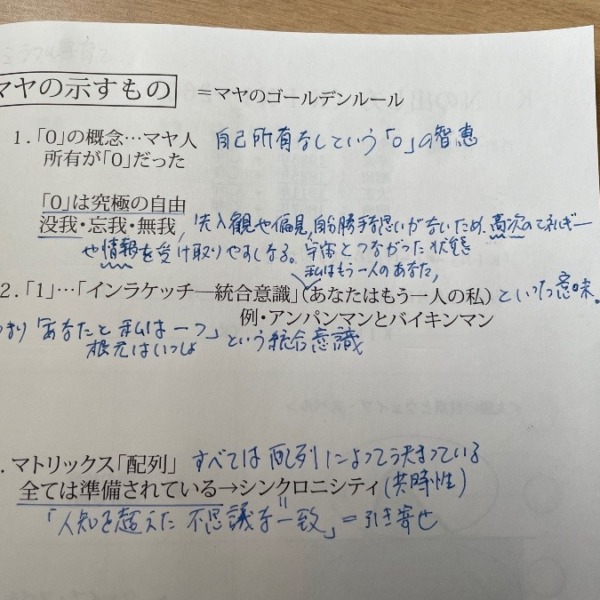 マヤの示すもの ＝マヤのゴールデンルール
1.「0」の概念…マヤ人 自己所有なしという「0」の智恵
所有が「0」だった
「0」は究極の自由
没我・忘我・無我, 先入観や偏見,自分勝手な思いがないため、高次のエネルギー
や情報を受け取りやすくなる。宇宙とつながった状態
私はもう一人のあなた,
2.「1」…「インラケッチ―統合意識」(あなたはもう一人の私) といった意味。
例・アンパンマンとバイキンマン
つまり「あなたと私は一つ」という統合意識
根元はいっしょ
.マトリックス「配列」 すべては配列によって決まっている
全ては準備されている→シンクロニシティ(共時性)
「人知を超えた不思議な一致」＝引き寄せ